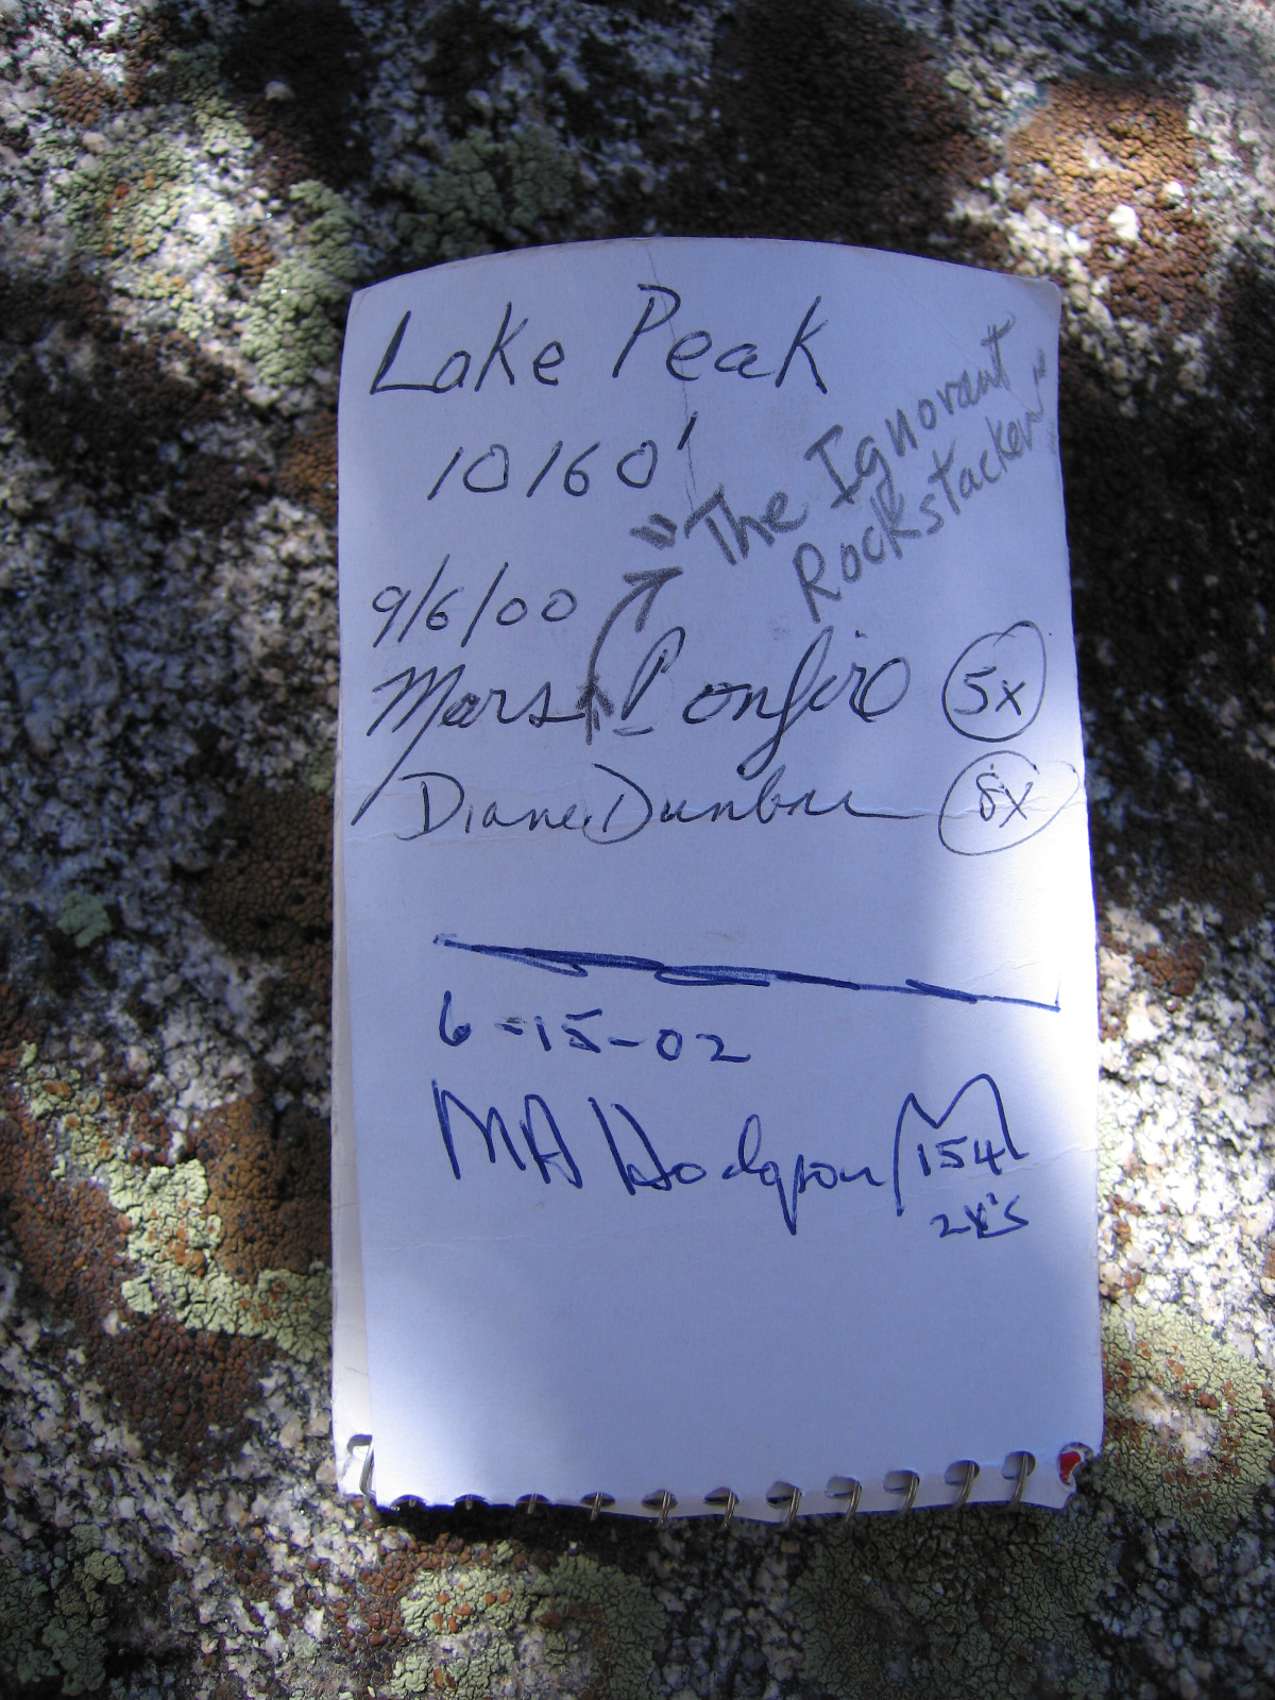 Lake Peak
10160'
"The Ignorant
Rockstacker"
9/6/00
Mars Bonfire 5x
Diane Dunbar 8x
6-15-02
MA Hodgson 154
2x's